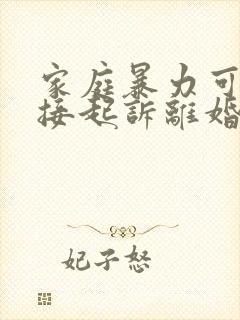 家庭暴力可
接起訴離婚
妃子怒